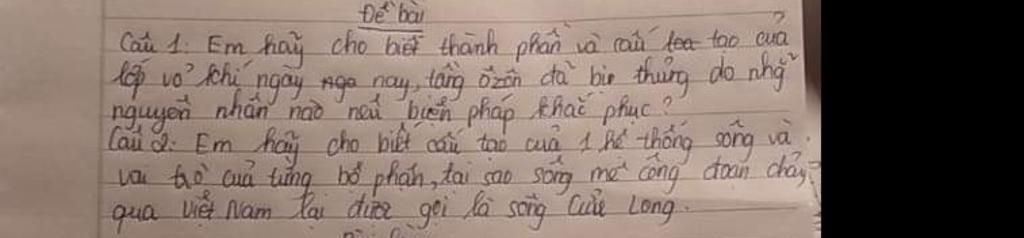 Đề bài
Câu 1: Em hãy cho biết thành phần và cấu tạo của
lớp vỏ khí ngày nay, tầng ôzôn đã bị thủng do nhg
nguyên nhân nào nêu biện pháp khắc phục?
Câu 2: Em hãy cho biết cấu tạo của 1 hệ thống sông và
vai trò của từng bộ phận, tại sao sông mê công đoạn chảy
qua Việt Nam lại được gọi là sông Cửu Long.